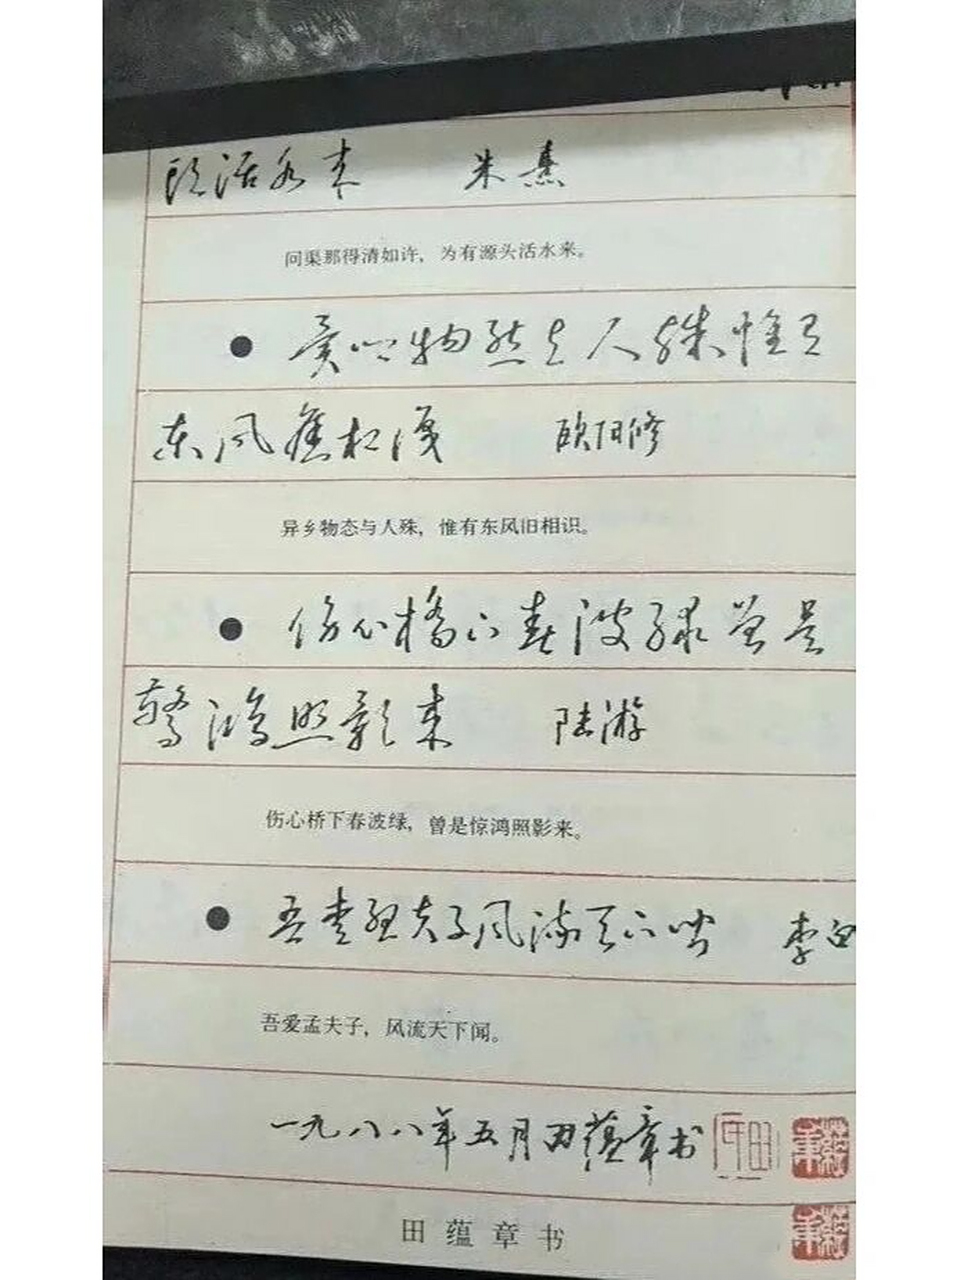 頭活水来 朱熹
问渠那得清如许，为有源头活水来。
● 異乡物態与人殊惟有
东风舊相识 欧阳修
异乡物态与人殊，惟有东风旧相识。
● 伤心橋下春波绿曾是
驚鸿照影来 陆游
伤心桥下春波绿，曾是惊鸿照影来。
● 吾爱孟夫子风流天下闻 李白
吾爱孟夫子，风流天下闻。
一九八八年五月田蕴章书 田氏
田蕴章书